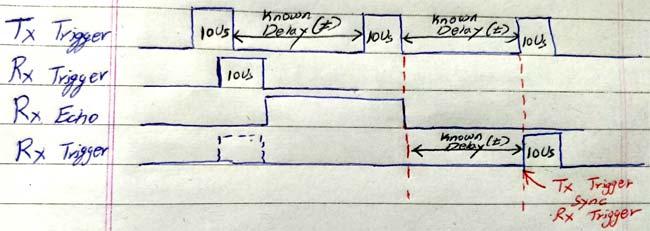 Tx Trigger 10Us Known Delay (±) 10Us Known Delay (±) 10Us
Rx Trigger 10Us
Rx Echo
Rx Trigger Known Delay (±) 10Us
Tx Trigger
Sync
Rx Trigger